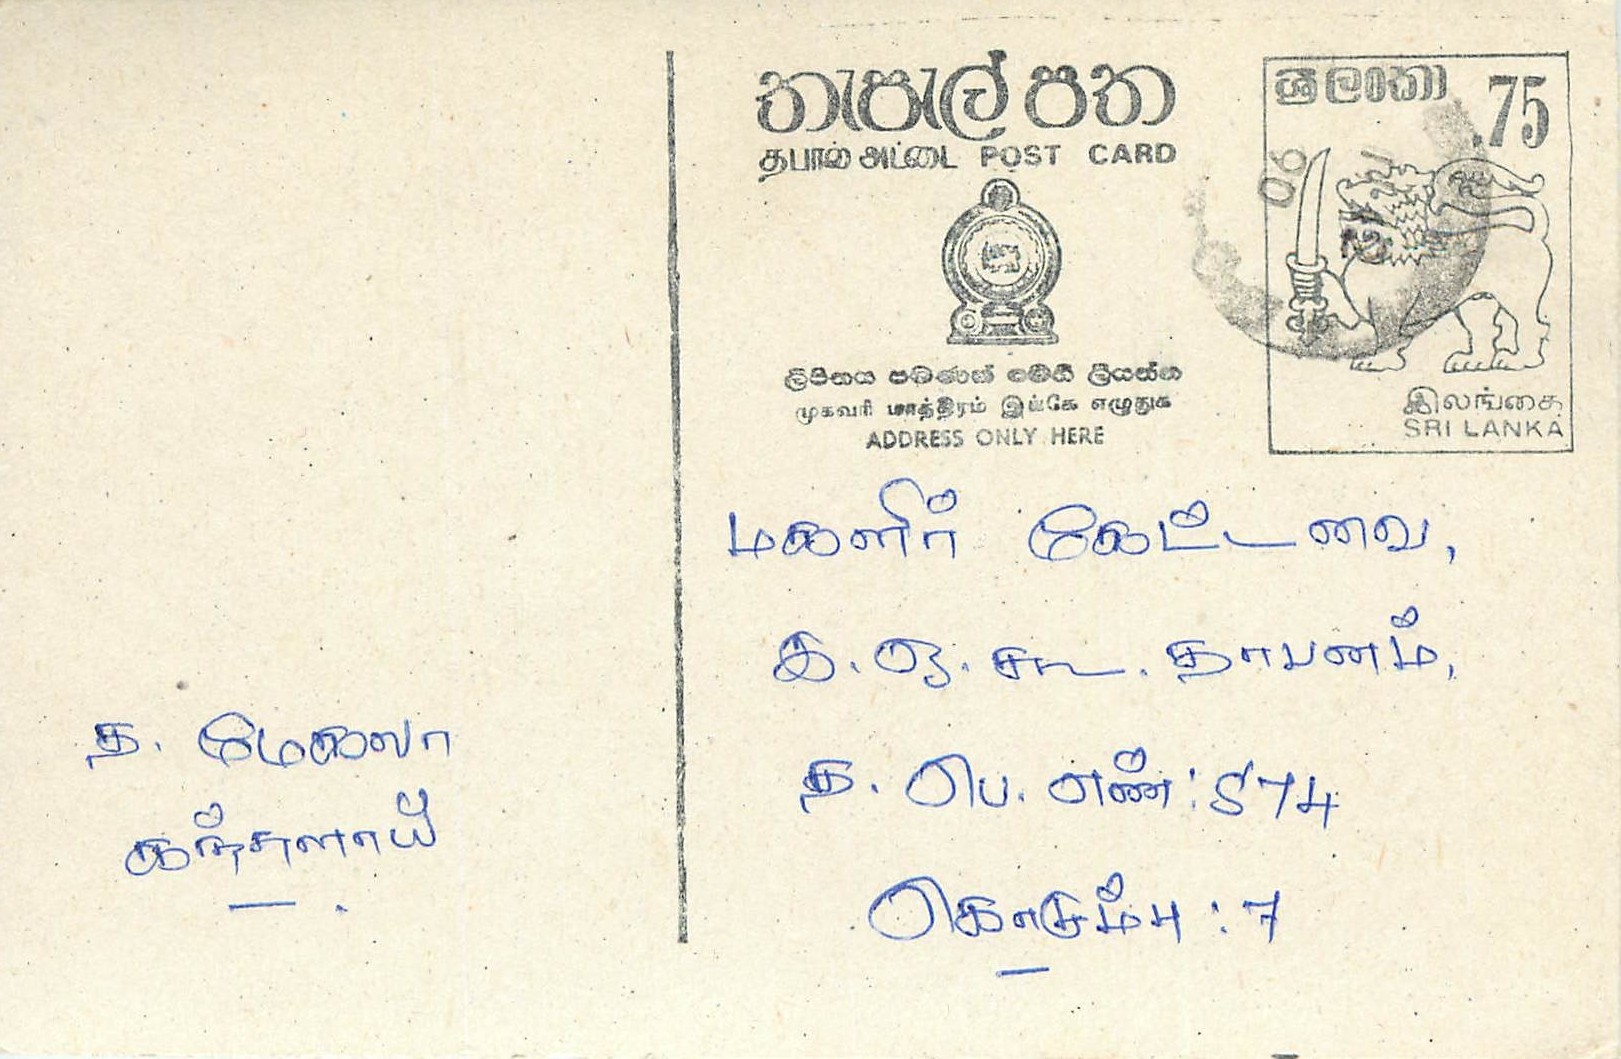 තැපැල් පත
தபால் அட்டை POST CARD
ලිපිනය පමණක් මෙහි ලියන්න
முகவரி மாத்திரம் இங்கே எழுதுக
ADDRESS ONLY HERE
ශ්‍රී ලංකා .75
90
இலங்கை
SRI LANKA
மகளிர் கேட்டவை,
இ. ஒ. கூ. தாபனம்,
த. பெ. எண்: 574
கொழும்பு : 7
த. மேகலா
கந்தளாய்